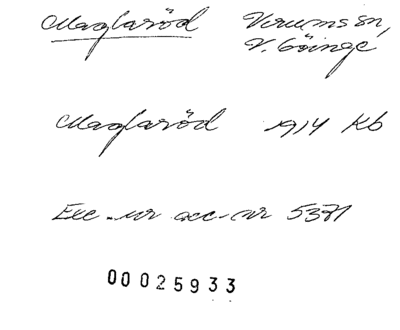 Maglaröd Verums sn,
V. Göinge
Maglaröd 1914 Kb
Exc. ur acc. nr 5371
00025933